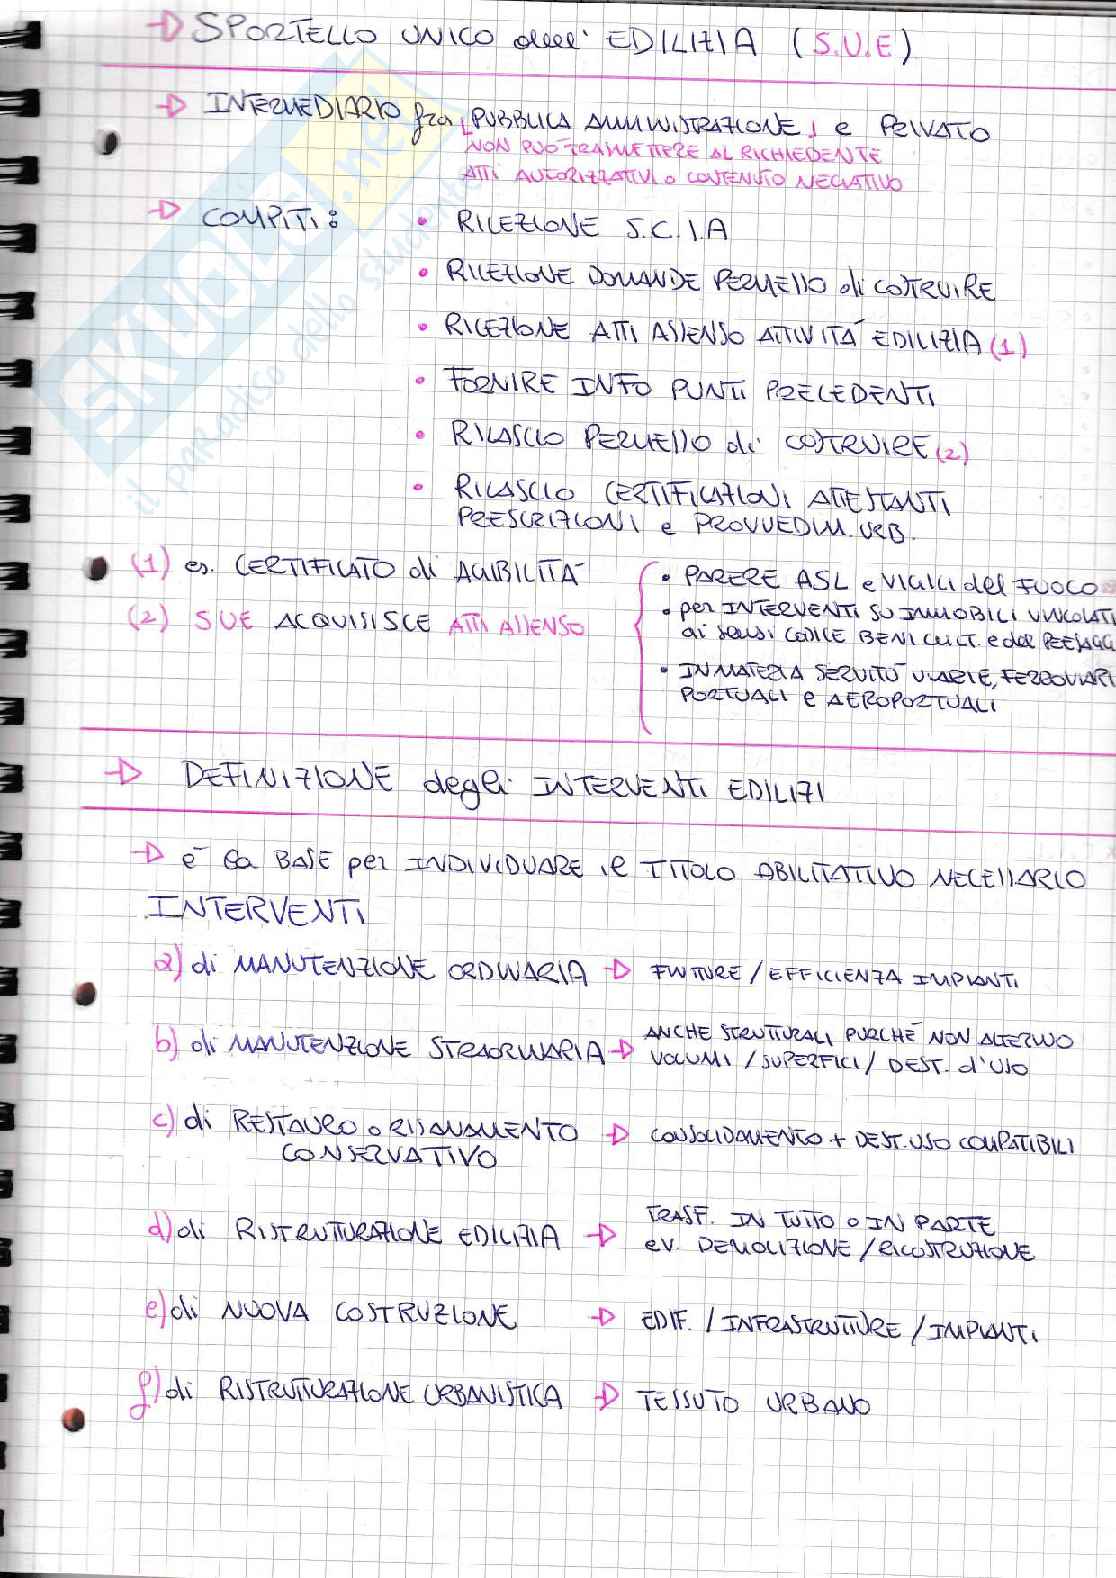 → SPORTELLO UNICO dell'EDILIZIA (S.U.E)
→ INTERMEDIARIO fra [PUBBLICA AMMINISTRAZIONE] e PRIVATO
NON PUÒ TRAMETTERE AL RICHIEDENTE
ATTI AUTORIZZATIVI o CONTENUTO NEGATIVO
→ COMPITI: • RICEZIONE S.C.I.A
• RICEZIONE DOMANDE PERMESSO di COSTRUIRE
• RICEZIONE ATTI ASSENSO ATTIVITÀ EDILIZIA (1)
• FORNIRE INFO PUNTI PRECEDENTI
• RILASCIO PERMESSO di COSTRUIRE (2)
• RILASCIO CERTIFICAZIONI ATTESTANTI
PRESCRIZIONI e PROVVEDIM. URB.
(1) es. CERTIFICATO di AGIBILITÀ
(2) SUE ACQUISISCE ATTI ASSENSO
• PARERE ASL e VIGILI del FUOCO
• per INTERVENTI SU IMMOBILI VINCOLATI
ai sensi CODICE BENI CULT. e del PAESAGG
• IN MATERIA SERVITÙ VIARIE, FERROVIARI
PORTUALI e AEROPORTUALI
→ DEFINIZIONE degli INTERVENTI EDILIZI
→ è la BASE per INDIVIDUARE il TITOLO ABILITATIVO NECESSARIO
INTERVENTI
a) di MANUTENZIONE ORDINARIA → FINITURE / EFFICIENZA IMPIANTI
b) di MANUTENZIONE STRAORDINARIA → ANCHE STRUTTURALI PURCHÈ NON ALTERINO
VOLUMI / SUPERFICI / DEST. d'USO
c) di RESTAURO o RISANAMENTO → CONSOLIDAMENTO + DEST. USO COMPATIBILI
CONSERVATIVO
d) di RISTRUTTURAZIONE EDILIZIA → TRASF. IN TUTTO o IN PARTE
ev. DEMOLIZIONE / RICOSTRUZIONE
e) di NUOVA COSTRUZIONE → EDIF. / INFRASTRUTTURE / IMPIANTI
f) di RISTRUTTURAZIONE URBANISTICA → TESSUTO URBANO
SKUOLA.net
il paradiso dello studente